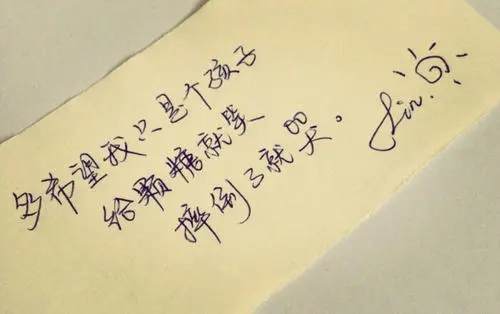 多希望我只是个孩子
给颗糖就笑
摔倒了就哭。